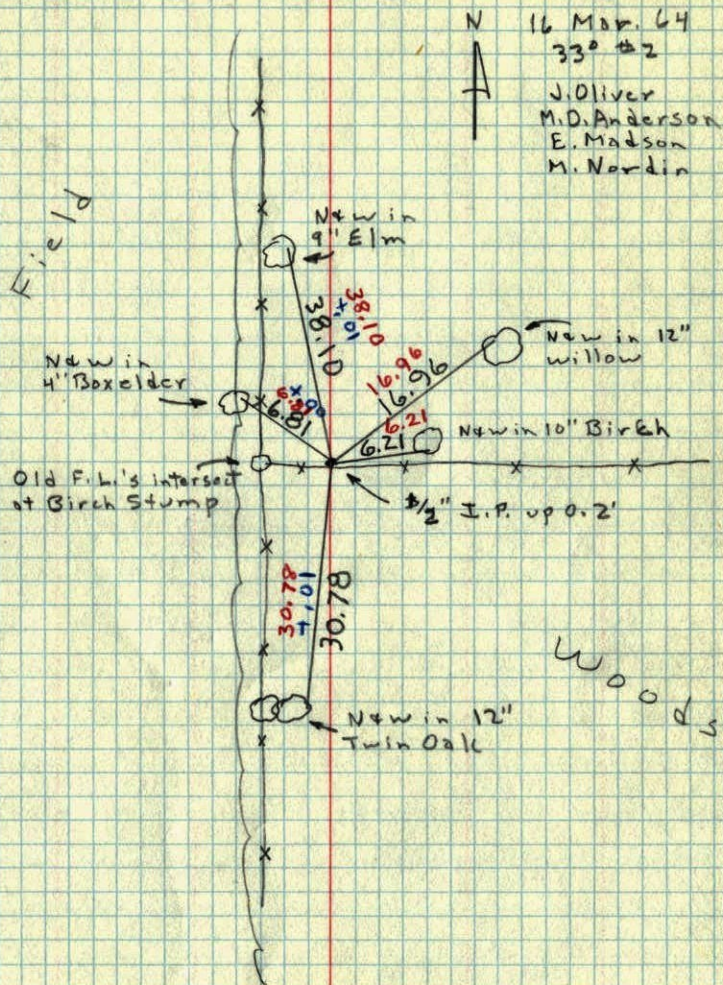 N
16 Mar. 64
33° #2
J. Oliver
M.D. Anderson
E. Madson
M. Nordin
Field
N&W in
9" Elm
38.10
+.01
38.10
N&W in 12"
Willow
16.96
16.96
N&W in
4" Boxelder
6.81
6.21
6.21
N&W in 10" Birch
Old F.L.'s intersect
at Birch Stump
I.P. up 0.2'
30.78
+.01
30.78
Woods
N&W in 12"
Twin Oak